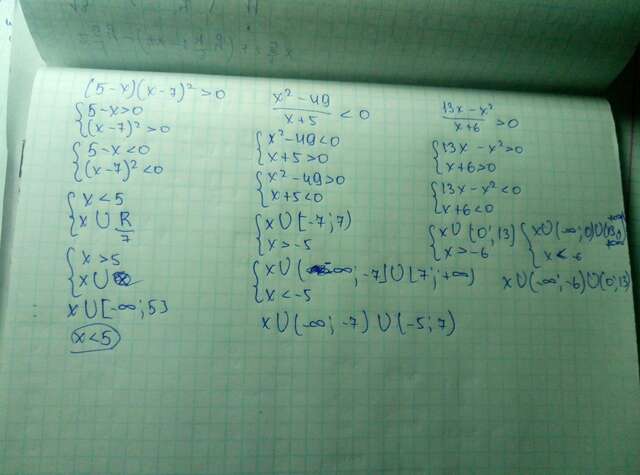 (5-x)(x-7)² > 0
{ 5-x>0
(x-7)² > 0
{ 5-x<0
(x-7)² < 0
{ x<5
x U R/7
{ x>5
x U
x U [-∞; 5}
x<5
(x²-49)/(x+5) < 0
{ x²-49<0
x+5>0
{ x²-49>0
x+5<0
{ x U [-7; 7)
x>-5
{ x U (-∞; -7] U [7; +∞)
x<-5
x U (-∞; -7) U (-5; 7)
(13x-x²)/(x+6) > 0
{ 13x-x²>0
x+6>0
{ 13x-x²<0
x+6<0
{ x U (0; 13)
x>-6
{ x U (-∞; 0) U (13; +∞
x<-6
x U (-∞; -6) U (0; 13)